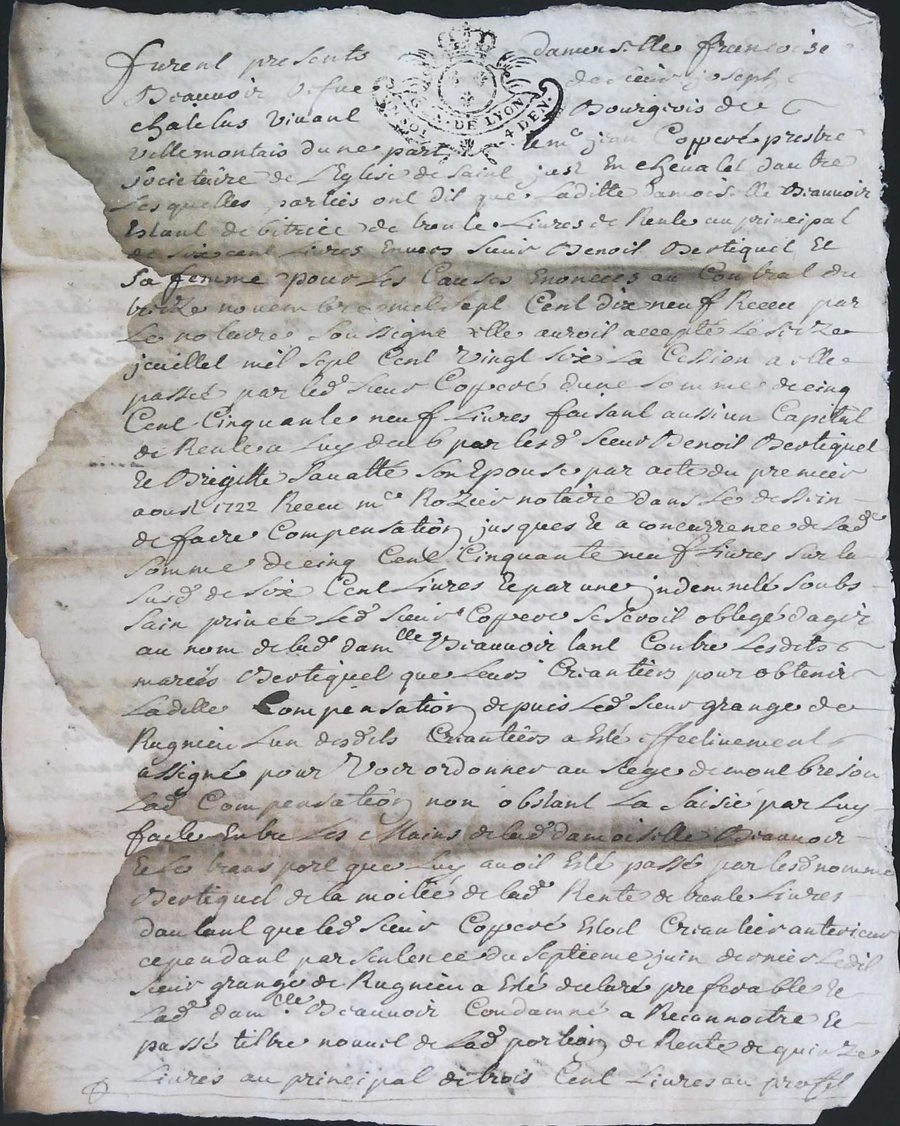 furent presents damoiselle francoise
Beauvoir vefue de sieur joseph
chatelus vivant Bourgeois de
G. N. DE LYON
SOL. 4 DEN.
Villemontais dune part le mr jean Copperé prestre
sôcietaire de L'Eglise de Saint just En chevalet dautre
Lesquelles parties ont dit que Laditte damoiselle Beauvoir
Estant debitrice de trente Livres de Rente au principal
de six cent Livres Envers sieur Benoit Bertiquel Et
Sa femme pour les Causes Enoncees au Contrat du
treize novembre mil sept Cent dix neuf Receu par
Le notaire Soussigné Elle auroit accepté le seize
jeuillet mil sept Cent vingt six La Cession a elle
passée par led. sieur Coperé dune somme de cinq
Cent Cinquante neuf Livres faisant aussi un Capital
de Rente a Luy deub par lesd. sieur Benoit Bertiquel
Et Brigitte Sauatte son Epouse par acte du premier
aoust 1722 Receu me Rozier notaire dans le dessein
de faire Compensation jusques Et a concurrence de lad.
somme de cinq Cent Cinquante neuf Livres sur la
susd. de six Cent Livres Et par une jndemnité soubs
Sain priuée Led. sieur Coperé se seroit obligé dagir
au nom de lad. damlle Beauvoir tant Contre lesdits
mariés Bertiquel que Leurs Creantiers pour obtenir
Laditte Compensation depuis Led. sieur grange de
Rugnieu Lun desdits Creantiers a Esté effectivement
assigné pour Voir ordonner au siege de montbrison
Lad. Compensation non obstant La saisie par Luy
faite Entre Les Mains de lad. damoiselle Beauvoir
Et Le transport que Luy auoit Esté passé par lesd. nommé
Bertiquel de la moitiée de lad. Rente de trente Livres
dautant que led. sieur Copperé Estoit Creantier anterieur
cependant par sentence du septieme juin dernier Ledit
sieur grange de Rugnieu a Esté declaré preferable Et
Lad. damlle Beauvoir Condamné a Reconnoitre Et
passé tiltre nouuel de Lad. portion de Rente de quinze
Livres au principal de trois Cent Livres au profit